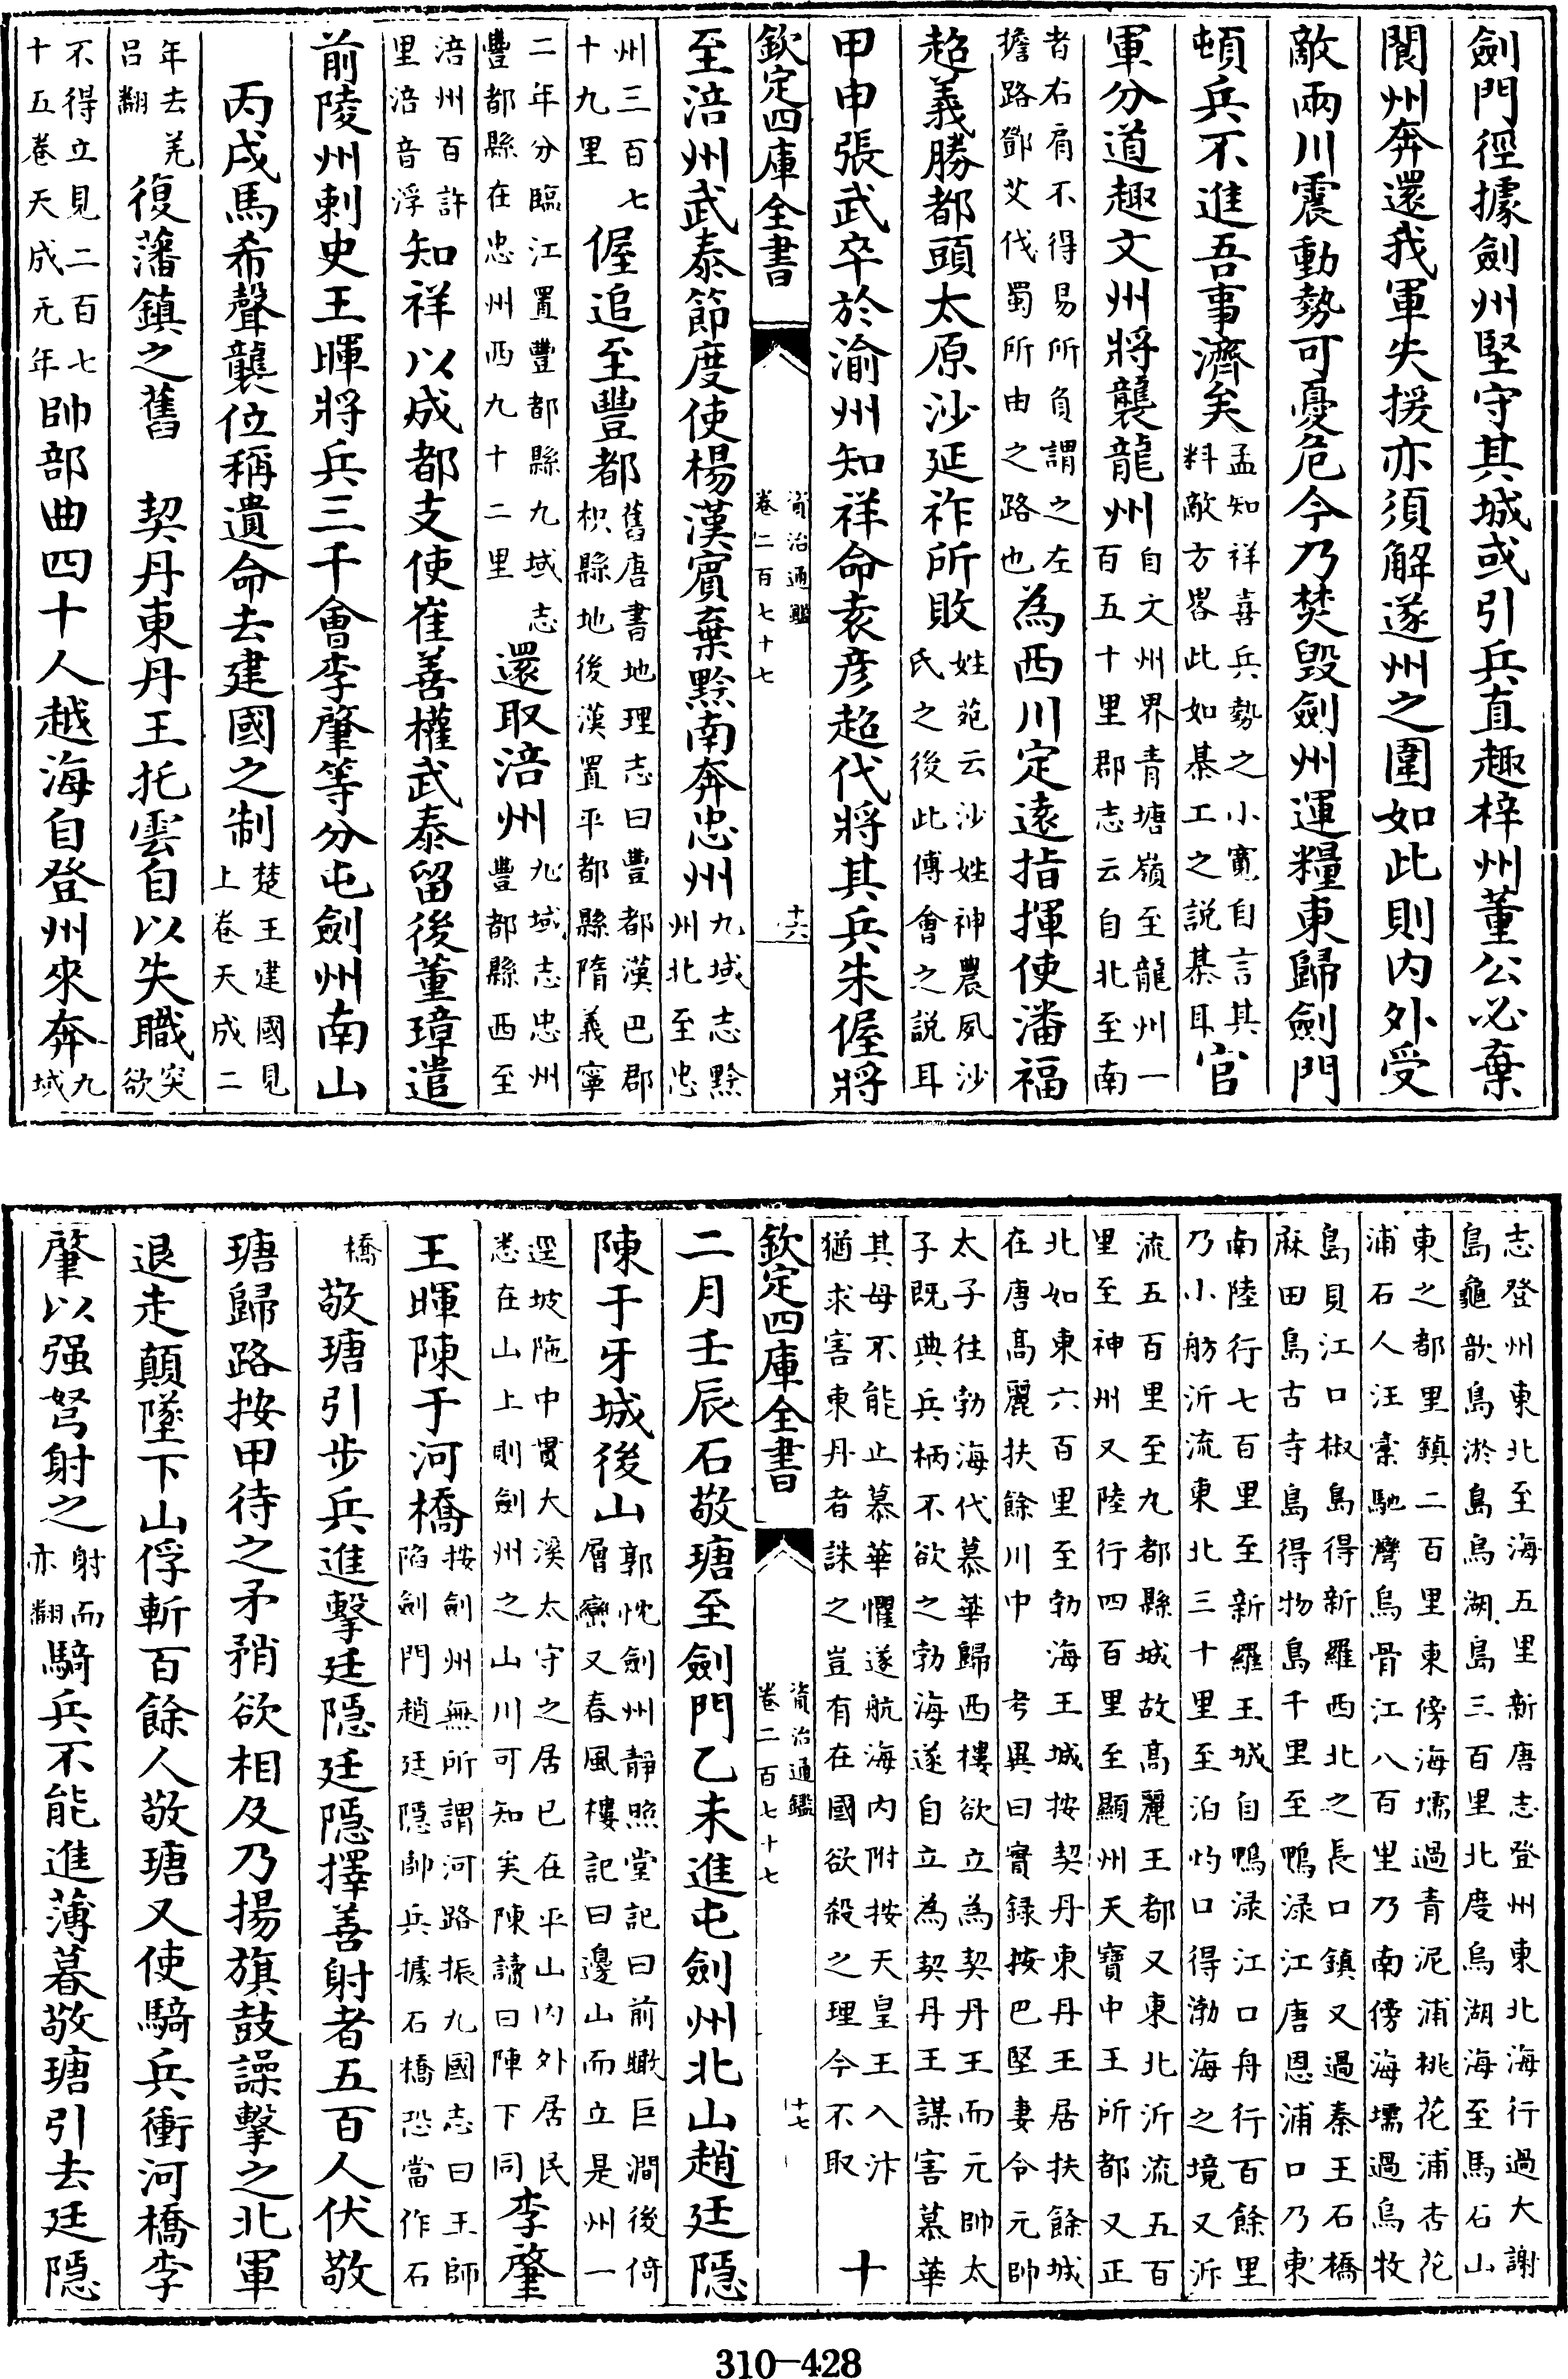 劍門徑據劍州堅守其城或引兵直趣梓州董公必棄
閬州奔還我軍失援亦須解遂州之圍如此則内外受
敵兩川震動勢可憂危今乃焚毁劍州運糧東歸劍門
頓兵不進吾事濟矣孟知祥喜兵勢之小寛自言其料敵方畧此如棊工之説棊耳官
軍分道趣文州將襲龍州自文州界青塘嶺至龍州一百五十里郡志云自北至南
者右肩不得易所負謂之左擔路鄧艾伐蜀所由之路也為西川定遠指揮使潘福
超義勝都頭太原沙延祚所敗姓苑云沙姓神農夙沙氏之後此傅會之説耳
甲申張武卒於渝州知祥命袁彦超代將其兵朱偓將
欽定四庫全書 資治通鑑 卷二百七十七 十六
至涪州武泰節度使楊漢賓棄黔南奔忠州九域志黔州北至忠
州三百七十九里偓追至豐都舊唐書地理志曰豐都漢巴郡枳縣地後漢置平都縣隋義寧
二年分臨江置豐都縣九域志豐都縣在忠州西九十二里還取涪州九域志忠州豐都縣西至
涪州百許里涪音浮知祥以成都支使崔善權武泰留後董璋遣
前陵州刺史王暉將兵三千會李肇等分屯劍州南山
丙戌馬希聲襲位稱遺命去建國之制楚王建國見上卷天成二
年去羌吕翻復藩鎮之舊 契丹東丹王托雲自以失職突欲
不得立見二百七十五卷天成元年帥部曲四十人越海自登州來奔九域
志登州東北至海五里新唐志登州東北海行過大謝島龜歆島淤島烏湖島三百里北度烏湖海至馬石山
東之都里鎮二百里東傍海壖過青泥浦桃花浦杏花浦石人汪槖馳灣烏骨江八百里乃南傍海壖過烏牧
島貝江口椒島得新羅西北之長口鎮又過秦王石橋麻田島古寺島得物島千里至鴨渌江唐恩浦口乃東
南陸行七百里至新羅王城自鴨渌江口舟行百餘里乃小舫泝流東北三十里至泊灼口得渤海之境又泝
流五百里至九都縣城故髙麗王都又東北泝流五百里至神州又陸行四百里至顯州天寶中王所都又正
北如東六百里至勃海王城按契丹東丹王居扶餘城在唐髙麗扶餘川中 考異曰實録按巴堅妻令元帥
太子往勃海代慕華歸西樓欲立為契丹王而元帥太子既典兵柄不欲之勃海遂自立為契丹王謀害慕華
其母不能止慕華懼遂航海内附按天皇王入汴猶求害東丹者誅之豈有在國欲殺之理今不取 十
欽定四庫全書 資治通鑑 卷二百七十七 十七
二月壬辰石敬瑭至劍門乙未進屯劍州北山趙廷隱
陳于牙城後山郭忱劍州靜照堂記曰前瞰巨澗後倚層巒又春風樓記曰邊山而立是州一
逕坡陁中貫大溪太守之居已在平山内外居民悉在山上則劍州之山川可知矣陳讀曰陣下同李肇
王暉陳于河橋按劍州無所謂河路振九國志曰王師陷劍門趙廷隱帥兵據石橋恐當作石
橋敬瑭引步兵進擊廷隱廷隱擇善射者五百人伏敬
瑭歸路按甲待之矛矟欲相及乃揚旗鼓譟擊之北軍
退走顛墜下山俘斬百餘人敬瑭又使騎兵衝河橋李
肇以强弩射之射而亦翻騎兵不能進薄暮敬瑭引去廷隱
310-428